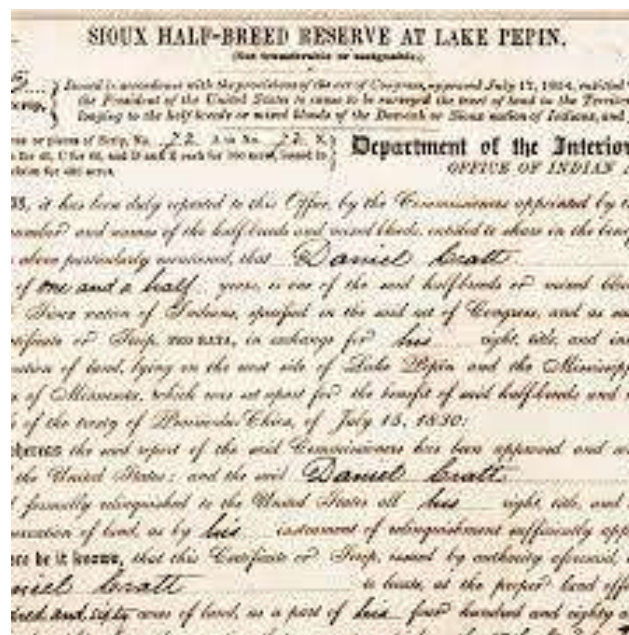 SIOUX HALF-BREED RESERVE AT LAKE PEPIN.
(Not transferable or assignable.)
Issued in accordance with the provisions of the act of Congress, approved July 17, 1854, entitled
the President of the United States to cause to be surveyed the tract of land in the Territor
longing to the half breeds or mixed bloods of the Dacotah or Sioux nation of Indians, and f
or pieces of Scrip, No. 22 A to No. 22 E.
for 40, C for 80, and D and E each for 160 acres, issued to
claim for 480 acres.
Department of the Interior
OFFICE OF INDIAN A
it has been duly reported to this Office, by the Commissioners appointed by t
number and names of the half breeds and mixed bloods, entitled to share in the ben
above particularly mentioned, that Daniel Cratt
of one and a half years, is one of the said half breeds or mixed blo
Sioux nation of Indians, specified in the said act of Congress, and as su
tificate or Scrip, in exchange for his right, title, and in
of land, lying on the west side of Lake Pepin and the Mississipp
of Minnesota, which was set apart for the benefit of said half-breeds and
of the treaty of Prairie du Chien, of July 15, 1830:
whereas the said report of the said Commissioners has been approved and
the United States; and the said Daniel Cratt
formally relinquished to the United States all his right, title, and
of land, as by his instrument of relinquishment sufficiently app
be it known, that this Certificate or Scrip, issued by authority aforesaid,
niel Cratt to locate, at the proper land off
dred and sixty acres of land, as a part of his four hundred and eighty a